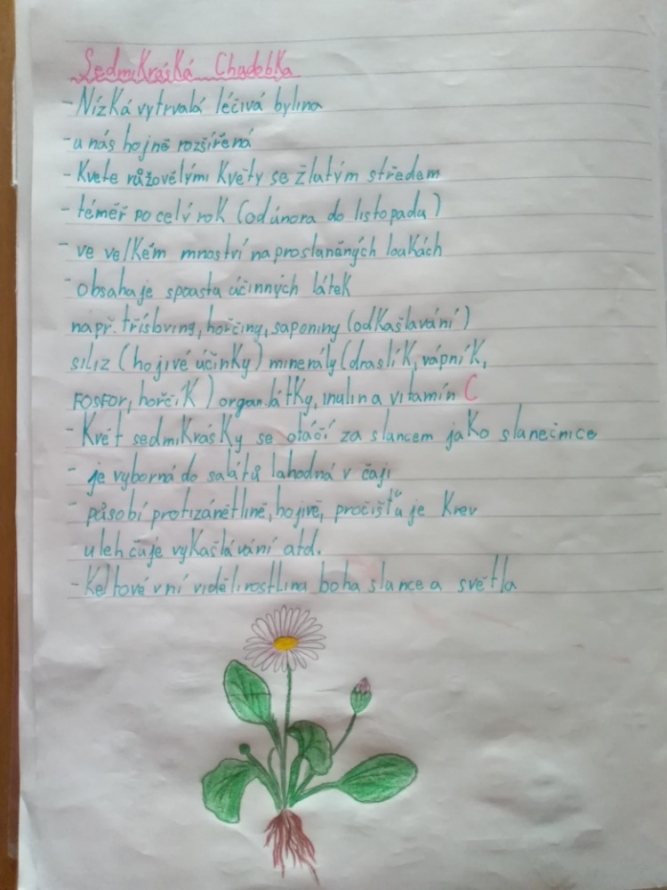 Sedmikráská Chudobka
- Nízká vytrvalá léčivá bylina
- u nás hojně rozšířená
- Kvete růžovělými Květy se žlatým středem
- téměř po celý rok (od února do listopadu)
- ve velkém mnoství na proslaněných loukách
- obsahuje spousta účinných látek
např. třísloving, hořčing, saponiny (odkašlavání)
sliz (hojivé účinky) minerály (draslík, vápník,
FOSFOR, hořčík) organ. látky, inulin a vitamín C
- Květ sedmikrásky se otáčí za slancem jako slanečnice
- je vyborná do salátů lahodná v čaji
- působí protizánětlivě, hojivě, pročišťuje Krev
ulehčuje vykašlávání atd.
- Keltové v ní viděli rostlina boha slance a světla